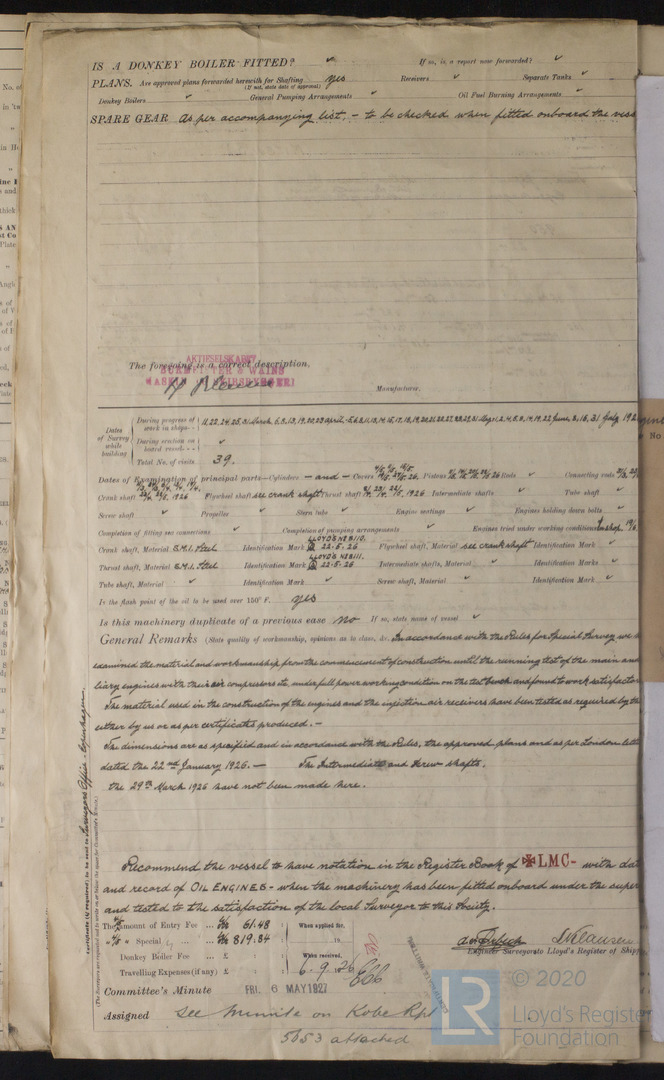 IS A DONKEY BOILER FITTED? ✓ If so, is a report now forwarded? ✓
PLANS. Are approved plans forwarded herewith for Shafting yes Receivers ✓ Separate Tanks ✓
(If not, state date of approval)
Donkey Boilers ✓ General Pumping Arrangements ✓ Oil Fuel Burning Arrangements ✓
SPARE GEAR As per accompanying list, - to be checked when fitted onboard the vess
AKTIESELSKABET
BURMEISTER & WAIN'S
The foregoing is a correct description,
Manufacturer.
Dates of Survey while building
During progress of work in shops - - 11, 22, 24, 25, 31 March, 6, 8, 13, 19, 20, 23 April, 5, 6, 8, 11, 13, 14, 15, 17, 18, 19, 20, 21, 22, 27, 28, 29, 31 May, 1, 2, 4, 5, 8, 14, 19, 22 June, 8, 16, 31 July 192
During erection on board vessel - - - ✓
Total No. of visits 39.
Dates of Examination of principal parts—Cylinders - and - Covers Pistons Rods ✓ Connecting rods
Crank shaft 1926 Flywheel shaft see crank shaft Thrust shaft 1926 Intermediate shafts ✓ Tube shaft ✓
Screw shaft ✓ Propeller ✓ Stern tube ✓ Engine seatings ✓ Engines holding down bolts ✓
Completion of fitting sea connections ✓ Completion of pumping arrangements ✓ Engines tried under working conditions In shop,
LLOYD'S No 8110.
Crank shaft, Material S.M.I. Steel Identification Mark 22-5-26 Flywheel shaft, Material see crank shaft Identification Mark ✓
LLOYD'S No 8111.
Thrust shaft, Material S.M.I. Steel Identification Mark 22-5-26 Intermediate shafts, Material ✓ Identification Marks ✓
Tube shaft, Material ✓ Identification Mark ✓ Screw shaft, Material ✓ Identification Mark ✓
Is the flash point of the oil to be used over 150° F. yes
Is this machinery duplicate of a previous case no If so, state name of vessel ✓
General Remarks (State quality of workmanship, opinions as to class, &c. In accordance with the Rules for Special Survey we h
examined the material and workmanship from the commencement of construction until the running test of the main and
liary engines with their air compressors etc. under full power working condition on the test bench and found to work satisfactor
The material used in the construction of the engines and the injection air receivers have been tested as required by the
either by us or as per certificates produced. -
The dimensions are as specified and in accordance with the Rules, the approved plans and as per London lette
dated the 22nd January 1926. - The Intermediate and Screw shafts,
the 29th March 1926 have not been made here.
Recommend the vessel to have notation in the Register Book of ✠LMC- with dat
and record of OIL ENGINES - when the machinery has been fitted onboard under the super
and tested to the satisfaction of the local Surveyor to this Society.
The amount of Entry Fee ... 61.48 When applied for,
" Special ... 819.84 19
Donkey Boiler Fee ... £ When received,
Travelling Expenses (if any) £ 6.9.26
Engineer Surveyor to Lloyd's Register of Shipp
Committee's Minute FRI. 6 MAY 1927
Assigned See minute on Kobe Rpt
5653 attached
Certificate (if required) to be sent to Surveyors Office - Copenhagen.
(The Surveyors are requested not to write on or below the space for Committee's Minute.)
LR
© 2020
Lloyd's Register
Foundation